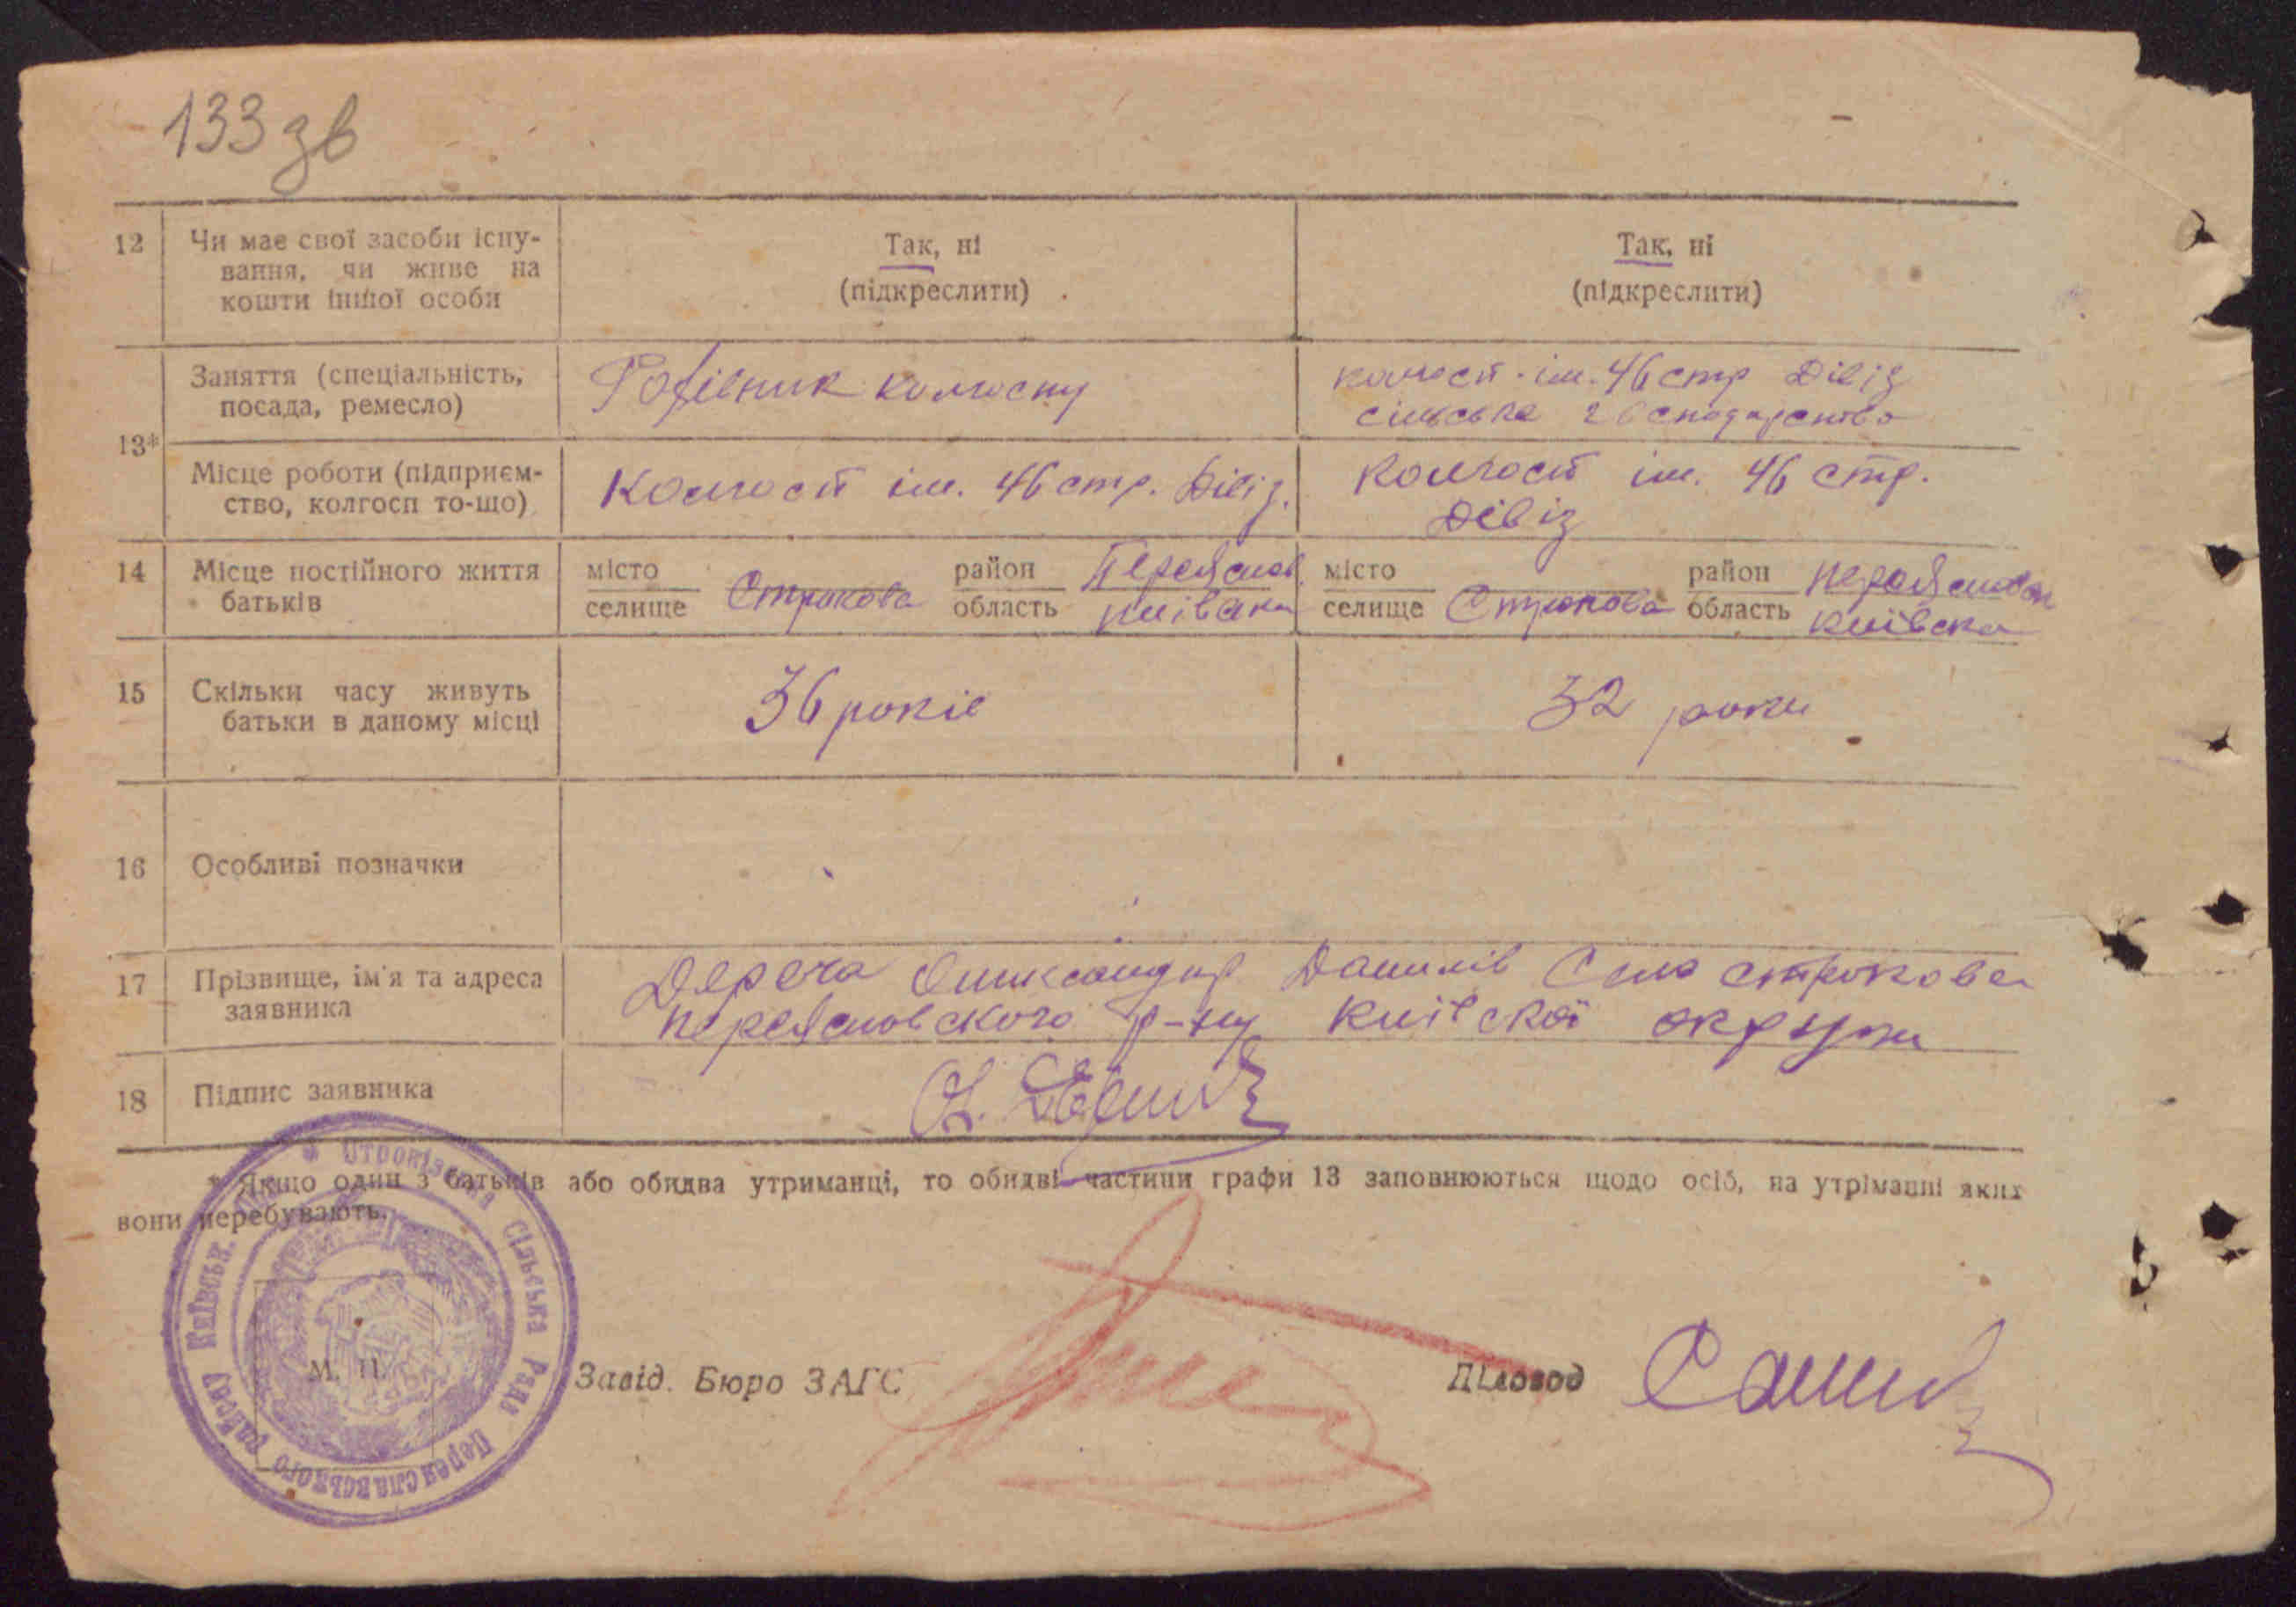 133 зв
12 Чи має свої засоби існу-
вання, чи живе на
кошти іншої особи
Так, ні
(підкреслити)
Так, ні
(підкреслити)
13*
Заняття (спеціальність,
посада, ремесло)
Робітник колгоспу
колгосп ім. 46 стр Дівіз
сільське господарство
Місце роботи (підприєм-
ство, колгосп то-що)
Колгосп ім. 46 стр. Дівіз.
Колгосп ім. 46 стр.
Дівіз
14 Місце постійного життя
батьків
місто
селище Строкова
район Переяслав.
область київська
місто
селище Строкова
район переяслав
область київска
15 Скільки часу живуть
батьки в даному місці
36 років
32 роки
16 Особливі позначки
17 Прізвище, ім'я та адреса
заявника
Дереча Олександир Данилів Село строкова
переяславского р-ну Київскої округи
18 Підпис заявника
* Якщо один з батьків або обидва утриманці, то обидві частини графи 13 заповнюються щодо осіб, на утріманні яких
вони перебувають.
Сільська Рада Переяславського району Київськ.
М. П.
Завід. Бюро ЗАГС
Діловод